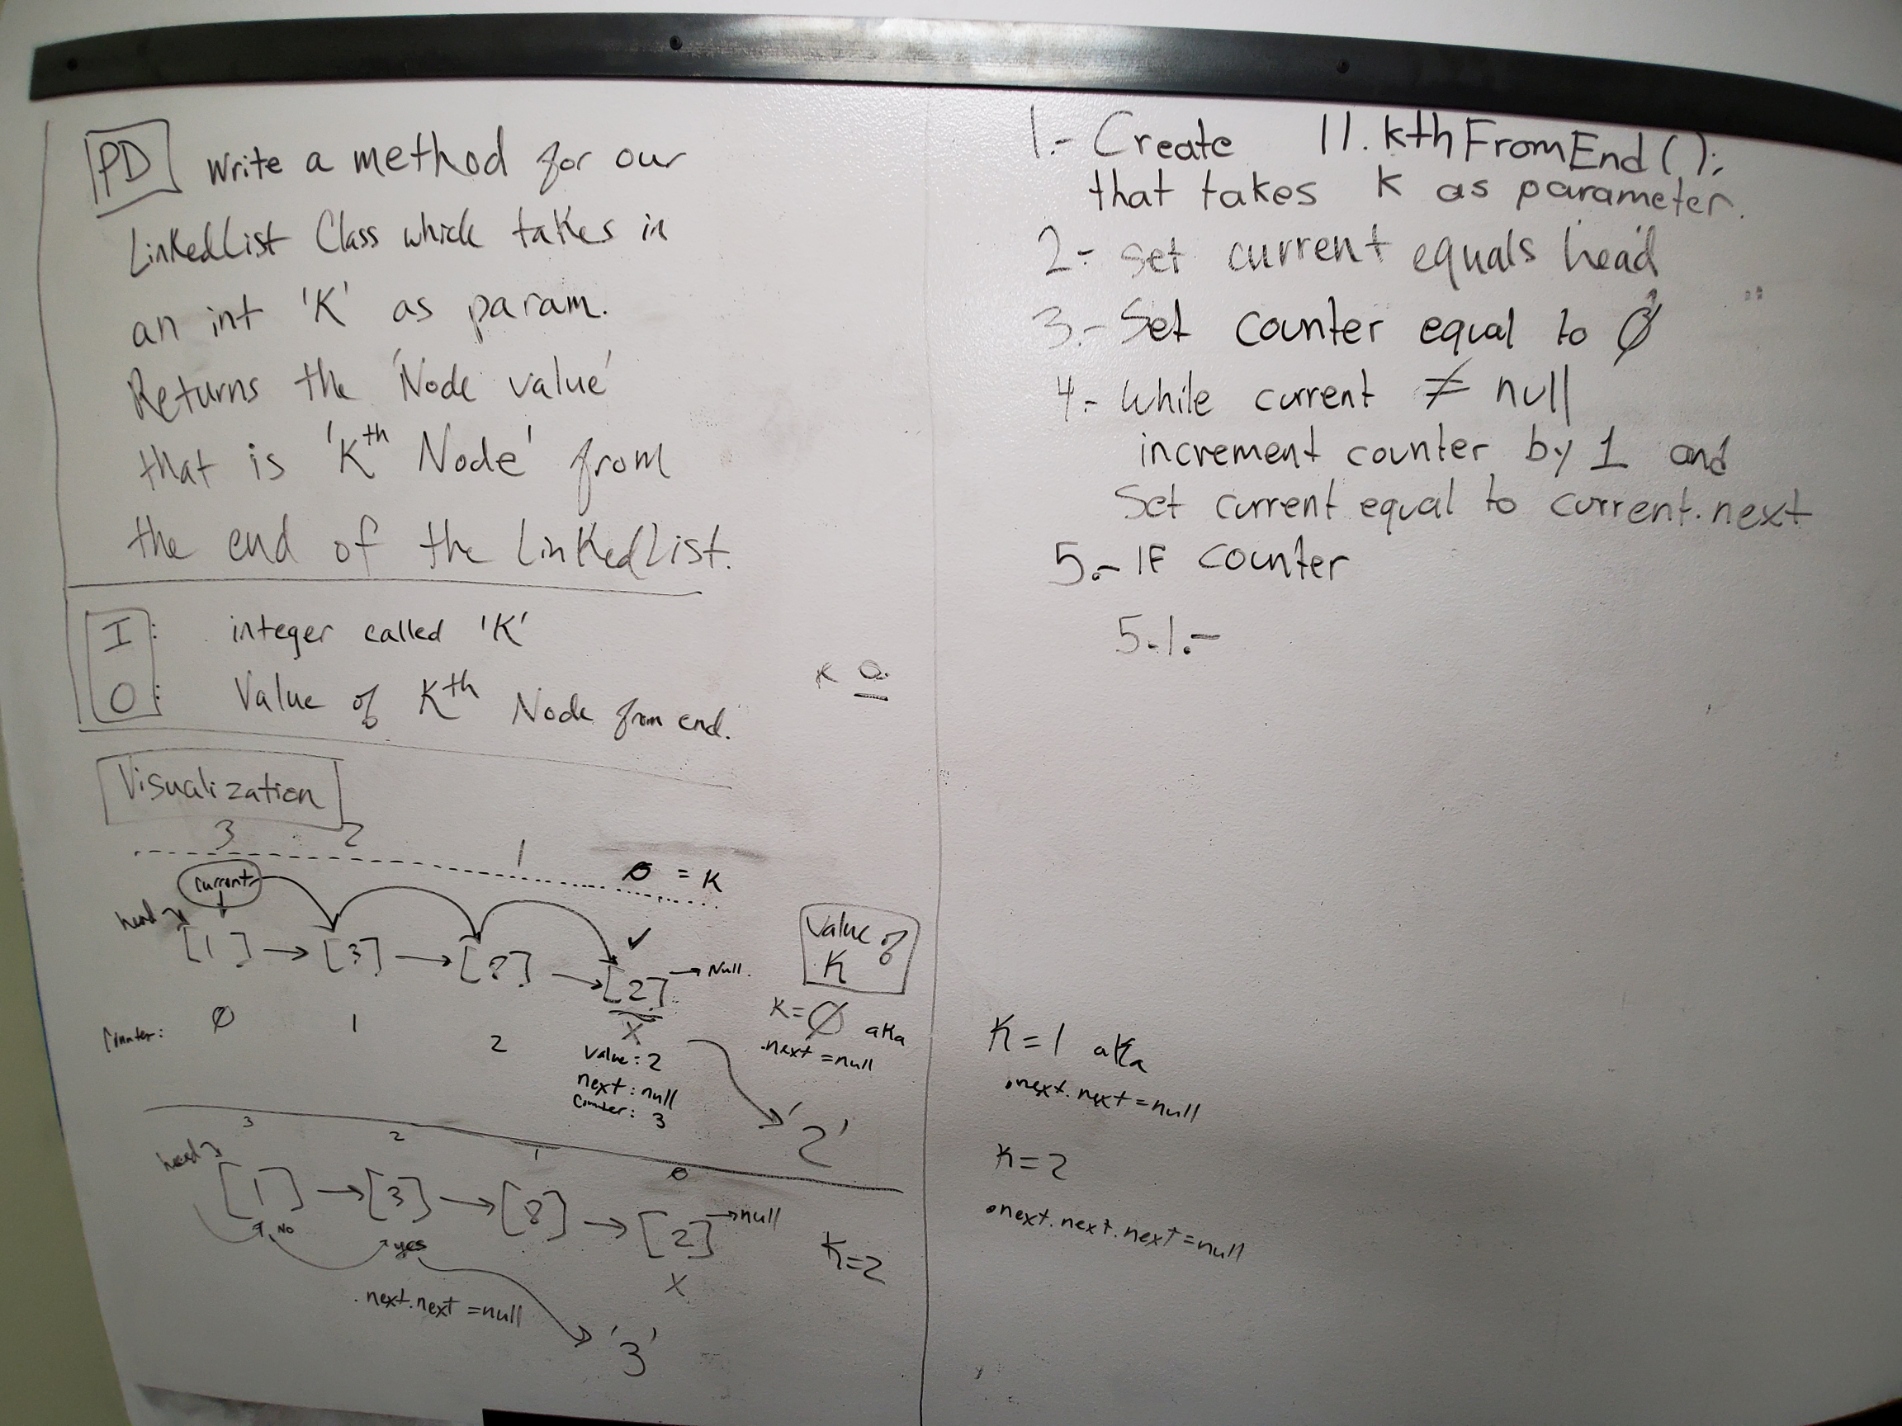 PD Write a method for our
LinkedList Class which takes in
an int 'K' as param.
Returns the 'Node value'
that is 'Kth Node' from
the end of the LinkedList.
I: integer called 'K'
O: Value of Kth Node from end.
Visualization
3 2 1 0 = K
current
head
[1] → [3] → [8] → [2] → Null
✓
Counter: 0 1 2
X
value: 2
next: null
Counter: 3
'2'
Value of
K
K=0 aka
.next = null
3 2 1 0
head
[1] → [3] → [8] → [2] → null
No
yes
X
K=2
.next.next = null
'3'
K
1.- Create ll.kthFromEnd();
that takes K as parameter.
2- set current equals head
3.- Set counter equal to 0
4.- While current ≠ null
increment counter by 1 and
Set current equal to current.next
5.- IF counter
5.1.-
K=1 aKa
.next.next = null
K=2
.next.next.next = null